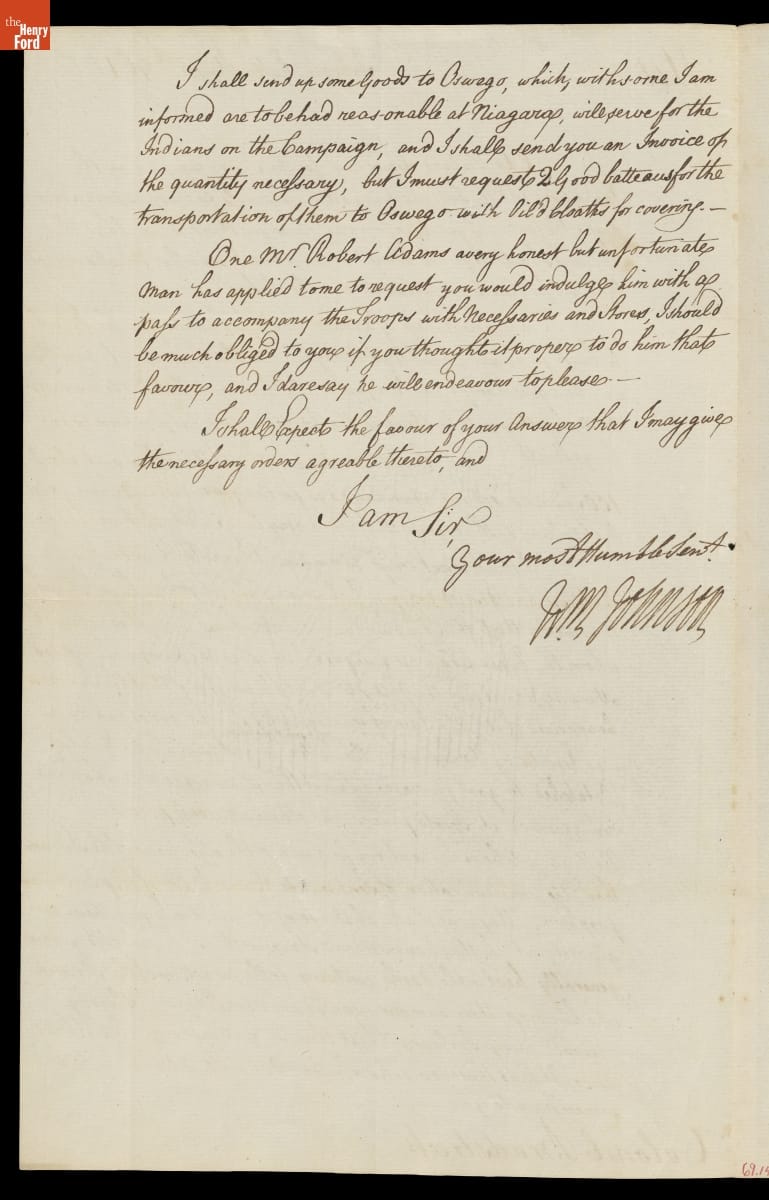 the
Henry
Ford
I shall send up some Goods to Oswego, which, with some I am
informed are to be had reasonable at Niagara, will serve for the
Indians on the Campaign, and I shall send you an Invoice of
the quantity necessary, but I must request 2 Good batteaus for the
transportation of them to Oswego with Oil'd Cloaths for covering. —
One Mr. Robert Adams a very honest but unfortunate
Man has applied to me to request you would indulge him with a
pass to accompany the Troops with Necessaries and Stores, I should
be much obliged to you if you thought it proper to do him that
favour, and I dare say he will endeavour to please. —
I shall Expect the favour of your Answer that I may give
the necessary orders agreable thereto, and
I am Sir,
Your most Humble Servt.
Wm Johnson